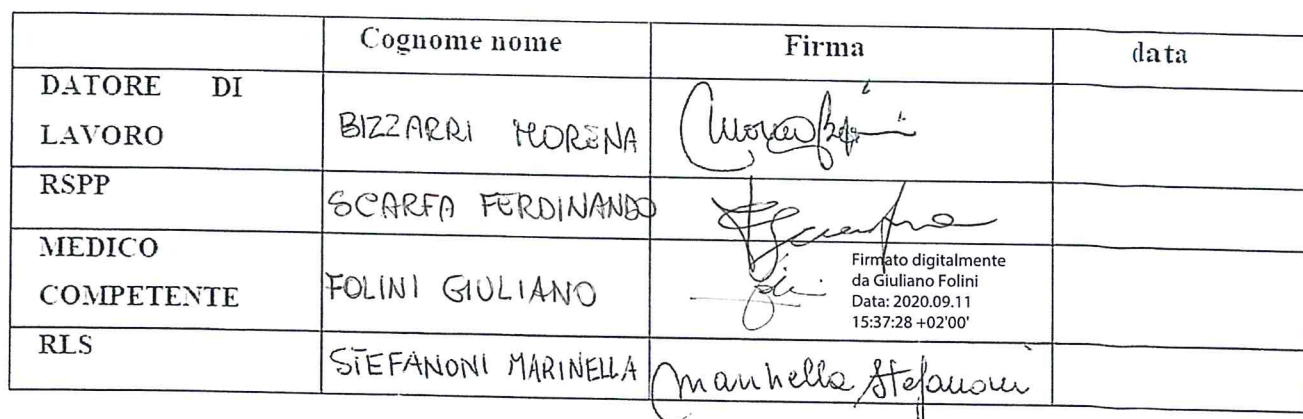 Cognome nome Firma data
DATORE DI
LAVORO
BIZZARRI MORENA
RSPP
SCARFA FERDINANDO
MEDICO
COMPETENTE
FOLINI GIULIANO
Firmato digitalmente
da Giuliano Folini
Data: 2020.09.11
15:37:28 +02'00'
RLS
STEFANONI MARINELLA
Marinella Stefanoni